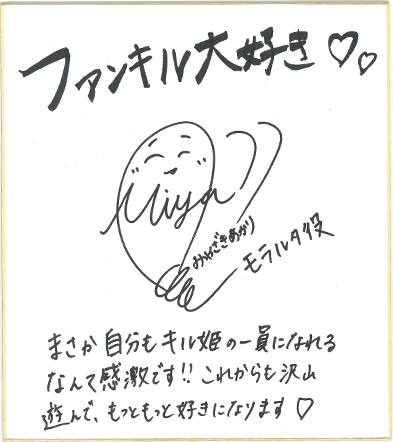 ファンキル大好き♡♡
Miya
みやざきあかり
モラルタ役
まさか自分もキル姫の一員になれる
なんて感激です!!これからも沢山
遊んで、もっともっと好きになります♡